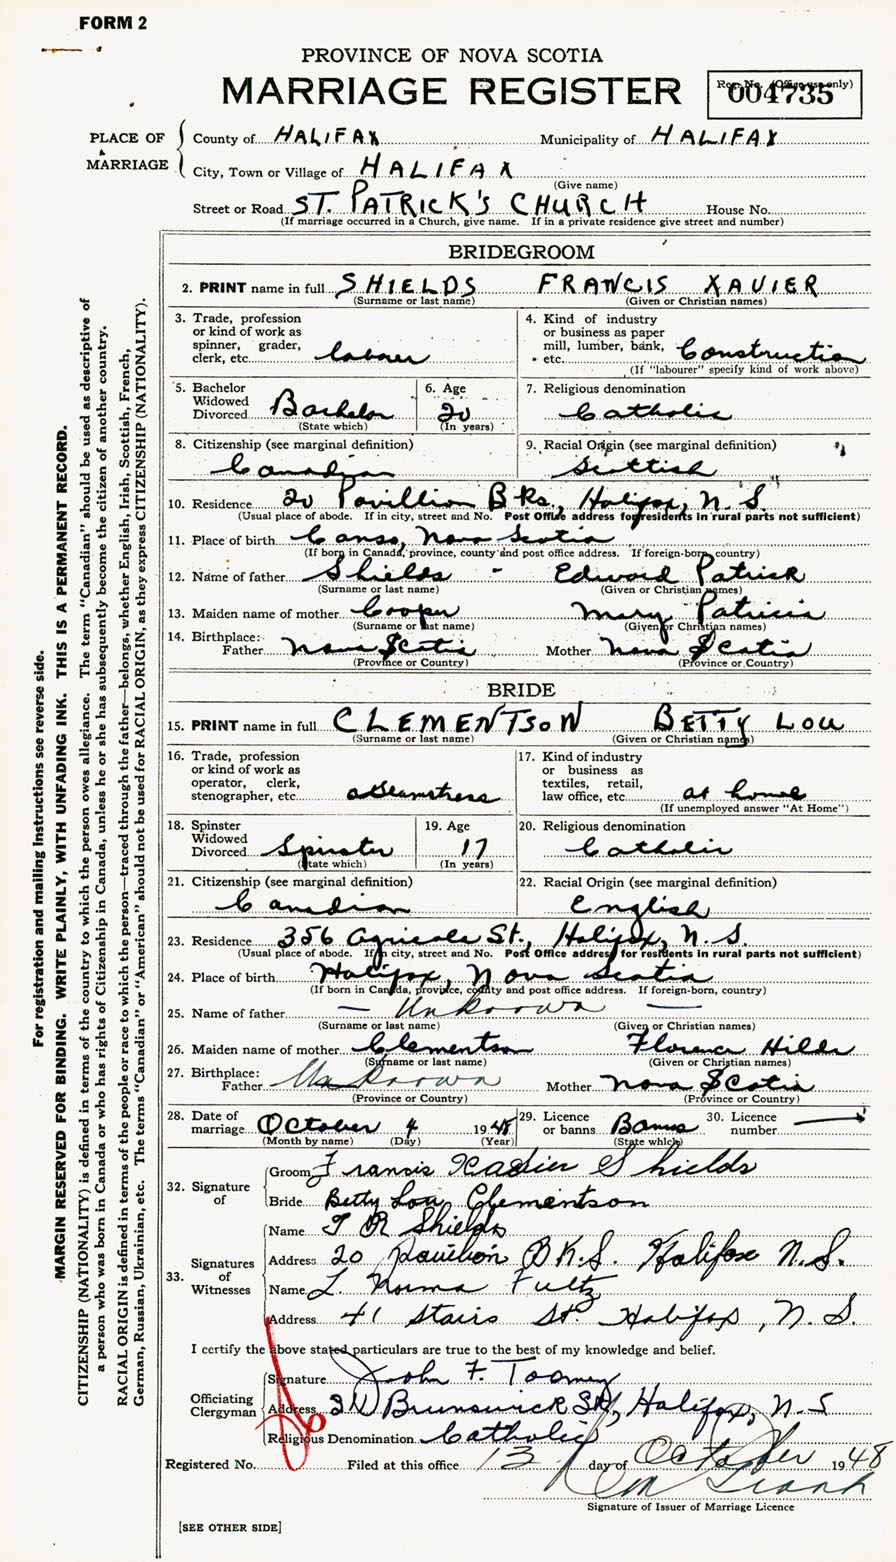 FORM 2
PROVINCE OF NOVA SCOTIA
MARRIAGE REGISTER
Reg. No. (Office use only)
004735
PLACE OF MARRIAGE
County of HALIFAX Municipality of HALIFAX
City, Town or Village of HALIFAX
(Give name)
Street or Road ST. PATRICK'S CHURCH House No.
(If marriage occurred in a Church, give name. If in a private residence give street and number)
BRIDEGROOM
2. PRINT name in full SHIELDS FRANCIS XAVIER
(Surname or last name) (Given or Christian names)
3. Trade, profession or kind of work as spinner, grader, clerk, etc. labourer
4. Kind of industry or business as paper mill, lumber, bank, etc. Construction
(If "labourer" specify kind of work above)
5. Bachelor Widowed Divorced Bachelor
(State which)
6. Age 20
(In years)
7. Religious denomination
Catholic
8. Citizenship (see marginal definition)
Canadian
9. Racial Origin (see marginal definition)
Scottish
10. Residence 20 Pavillion Bks, Halifax, N.S.
(Usual place of abode. If in city, street and No. Post Office address for residents in rural parts not sufficient)
11. Place of birth Canso, Nova Scotia
(If born in Canada, province, county and post office address. If foreign-born, country)
12. Name of father Shields - Edward Patrick
(Surname or last name) (Given or Christian names)
13. Maiden name of mother Cooper Mary Patricia
(Surname or last name) (Given or Christian names)
14. Birthplace:
Father Nova Scotia Mother Nova Scotia
(Province or Country) (Province or Country)
BRIDE
15. PRINT name in full CLEMENTSON BETTY LOU
(Surname or last name) (Given or Christian names)
16. Trade, profession or kind of work as operator, clerk, stenographer, etc. Seamstress
17. Kind of industry or business as textiles, retail, law office, etc. at home
(If unemployed answer "At Home")
18. Spinster Widowed Divorced Spinster
(State which)
19. Age 17
(In Years)
20. Religious denomination
Catholic
21. Citizenship (see marginal definition)
Canadian
22. Racial Origin (see marginal definition)
English
23. Residence 356 Agricola St., Halifax, N.S.
(Usual place of abode. If in city, street and No. Post Office address for residents in rural parts not sufficient)
24. Place of birth Halifax, Nova Scotia
(If born in Canada, province, county and post office address. If foreign-born, country)
25. Name of father — Unknown —
(Surname or last name) (Given or Christian names)
26. Maiden name of mother Clementson Florence Hilda
(Surname or last name) (Given or Christian names)
27. Birthplace:
Father Unknown Mother Nova Scotia
(Province or Country) (Province or Country)
28. Date of marriage October 4 1948
(Month by name) (Day) (Year)
29. Licence or banns Banns
(State which)
30. Licence number
32. Signature of
Groom Francis Xavier Shields
Bride Betty Lou Clementson
33. Signatures of Witnesses
Name Shields
Address 20 pavilion BKS. Halifax N.S.
Name L. Norma Fultz
Address 41 Stairs St. Halifax, N.S.
I certify the above stated particulars are true to the best of my knowledge and belief.
Officiating Clergyman
Signature John F. Toomey
Address Brunswick St, Halifax, N.S
Religious Denomination Catholic
Registered No. Filed at this office 13 day of October 1948
Signature of Issuer of Marriage Licence
[SEE OTHER SIDE]
For registration and mailing instructions see reverse side.
MARGIN RESERVED FOR BINDING. WRITE PLAINLY, WITH UNFADING INK. THIS IS A PERMANENT RECORD.
CITIZENSHIP (NATIONALITY) is defined in terms of the country to which the person owes allegiance. The term "Canadian" should be used as descriptive of
a person who was born in Canada or who has rights of Citizenship in Canada, unless he or she has subsequently become the citizen of another country.
RACIAL ORIGIN is defined in terms of the people or race to which the person—traced through the father—belongs, whether English, Irish, Scottish, French,
German, Russian, Ukrainian, etc. The terms "Canadian" or "American" should not be used for RACIAL ORIGIN, as they express CITIZENSHIP (NATIONALITY).